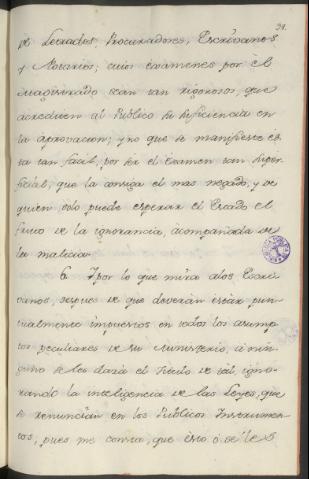 21.
de Letrados, Procuradores, Escrivanos
y Notarios; cuios examenes por el
Magistrado sean tan rigorosos, que
acrediten al Publico la suficiencia en
la aprovacion; y no que se manifieste es-
ta tan facil, por ser el examen tan super-
ficial, que la consiga el mas negado, y de
quien solo puede esperar el Estado el
fruto de la ignorancia, acompañada de
la malicia.
6. Y por lo que mira a los Escri-
vanos, despues de que deverán estar pun-
tualmente impuestos en todos los asump-
tos peculiares de su Ministerio, á nin-
guno se les dará el titulo de tal, igno-
rando la inteligencia de las Leyes, que
se renuncian en los Publicos Instrumen-
tos, pues me consta, que esto ó se le ó